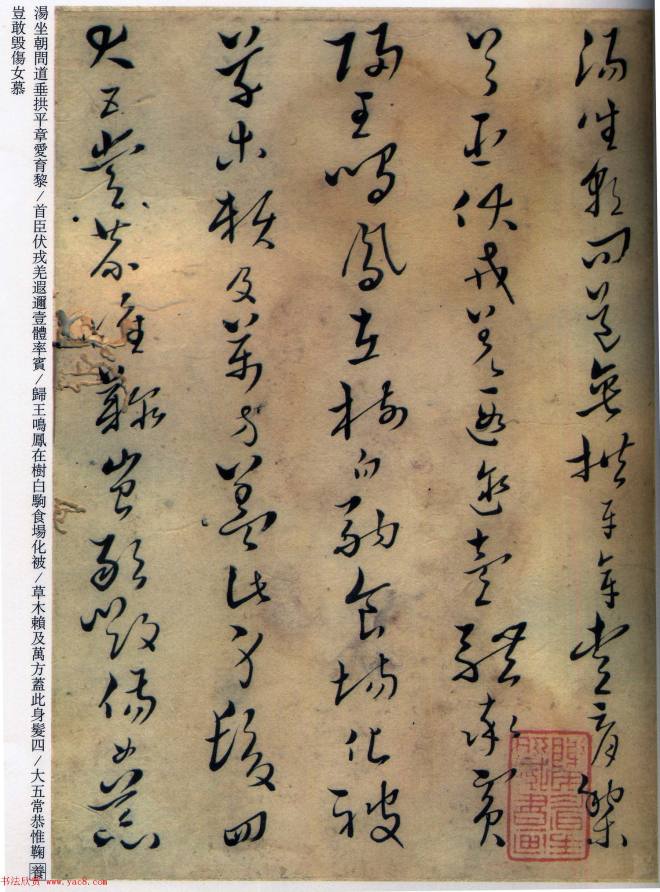 湯坐朝問道垂拱平章愛育黎
首臣伏戎羌遐邇壹體率賓
歸王鳴鳳在樹白駒食場化被
草木賴及萬方蓋此身髮四
大五常恭惟鞠養豈敢毀傷女慕
湯坐朝問道垂拱平章愛育黎/首臣伏戎羌遐邇壹體率賓/歸王鳴鳳在樹白駒食場化被/草木賴及萬方蓋此身髮四/大五常恭惟鞠養
豈敢毀傷女慕
书法欣赏 www.yac8.com